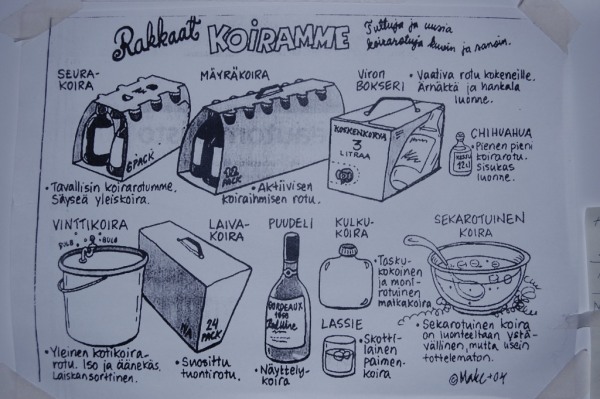 Rakkaat KOIRAMME
Tuttuja ja uusia
koirarotuja kuvin ja sanoin.
SEURA-
KOIRA
6 PACK
• Tavallisin koirarotumme.
Säyseä yleiskoira.
MÄYRÄKOIRA
PACK
• Aktiivisen
koiraihmisen rotu.
Viron
BOKSERI
KOSKENKORVA
3
LITRAA
• Vaativa rotu kokeneille.
Ärhäkkä ja hankala
luonne.
CHIHUAHUA
• Pienen pieni
koirarotu.
Sisukas
luonne.
VINTTIKOIRA
PULP
• Yleinen kotikoira-
rotu. Iso ja äänekäs.
Laiskansorttinen.
LAIVA-
KOIRA
24
PACK
• Suosittu
tuontirotu.
PUUDELI
BORDEAUX
• Näyttely-
koira
KULKU-
KOIRA
• Tasku-
kokoinen
ja moni-
rotuinen
matkakoira
LASSIE
• Skotti-
lainen
paimen-
koira
SEKAROTUINEN
KOIRA
• Sekarotuinen koira
on luonteeltaan ystä-
vällinen, mutta usein
tottelematon.